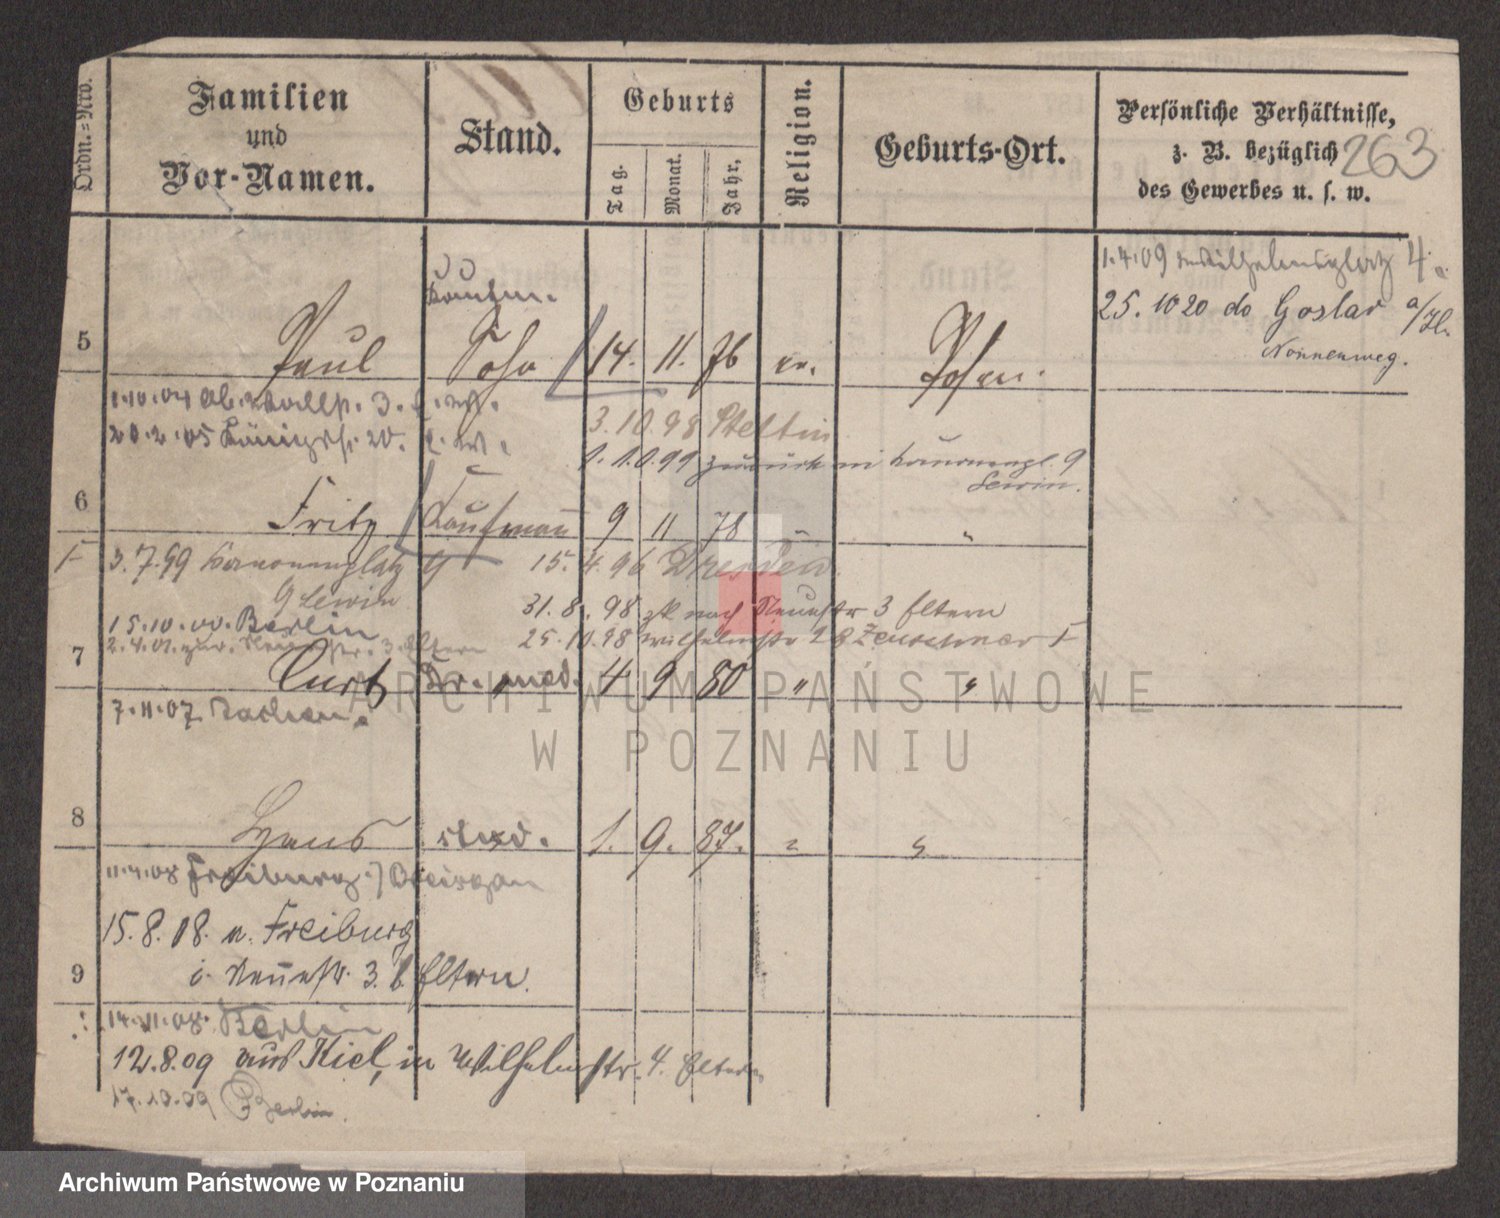 Ordn.=Nro.
Familien
und
Vor-Namen.
Stand.
Geburts
Tag.
Monat.
Jahr.
Religion.
Geburts-Ort.
Persönliche Verhältnisse,
z. B. bezüglich
des Gewerbes u. s. w.
263
1.4.09 Wilhelmsplatz 4.
25.10 20 do Goslar a/H.
Nonnenweg.
5
Paul
Kaufm.
Sohn
14. 11. 76
Posen.
1.10.04 3.
20.2.05 Königstr. 20.
3.10.98 Stettin
1.10.99 zurück Kanonenpl. 9
Lewin.
6
Fritz
Kaufmann
9 11 78 " "
3.7.99 Kanonenplatz 9
Lewin
15.4.96 Dresden.
31.8.98 zk nach Neuestr 3 Eltern
15.10.00. Berlin
25.10.98 Wilhelmstr 28
2.4.01. zur. Neuestr. 3 Eltern
7
Curt
Dr. med.
4 9 80 " "
7.11.07 Aachen.
8
Hans
stud.
1. 9. 87. " "
11.4.08 Freiburg i/Breisgau
15.8.08. v. Freiburg
i. Neuestr. 3. b. Eltern.
9
14.11.08. Berlin
12.8.09 aus Kiel, in Wilhelmstr. 4. Eltern
17.10.09 Berlin.
ARCHIWUM PAŃSTWOWE
W POZNANIU
Archiwum Państwowe w Poznaniu